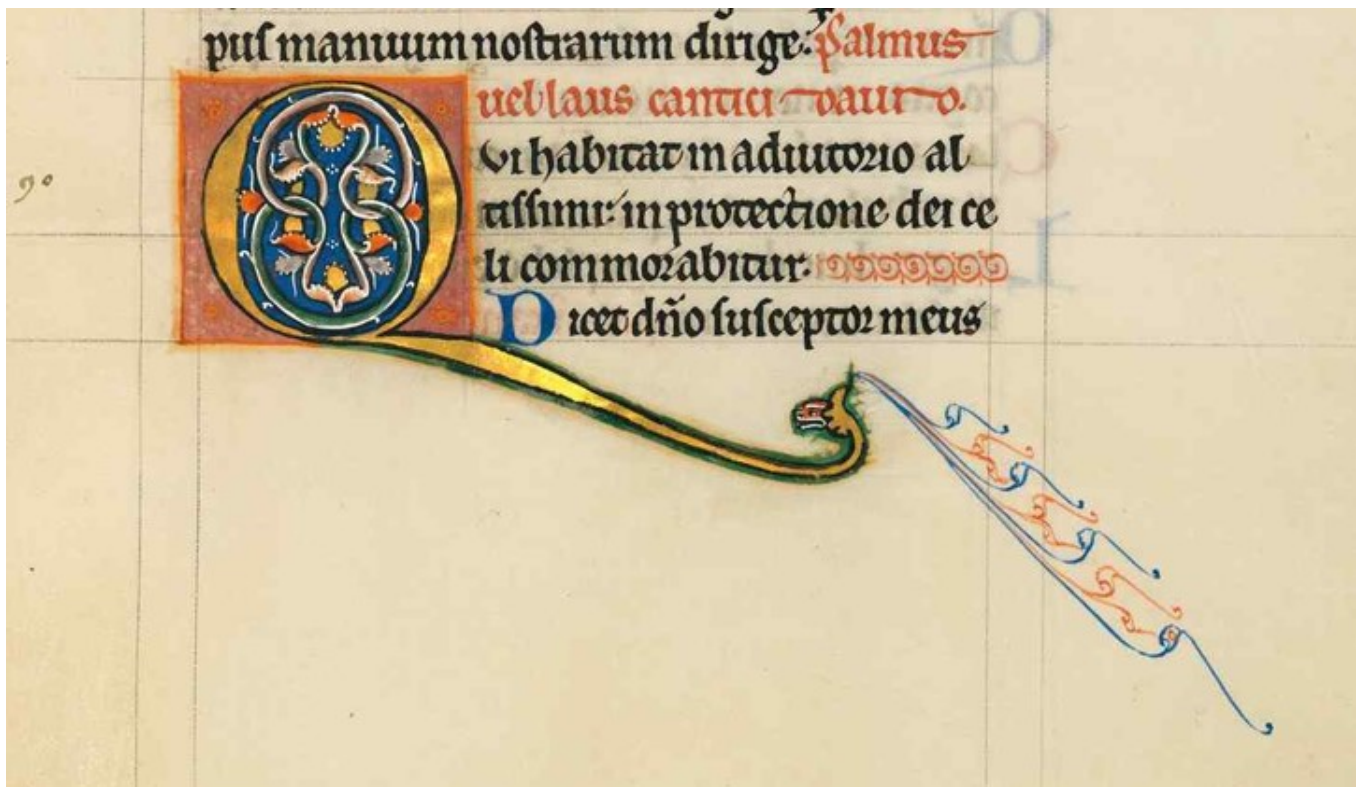 pus manuum nostrarum dirige. Psalmus
uel laus cantici dauid.
90
Qui habitat in adiutorio al
tissimi: in protectione dei ce
li commorabitur.
Dicet dño susceptor meus